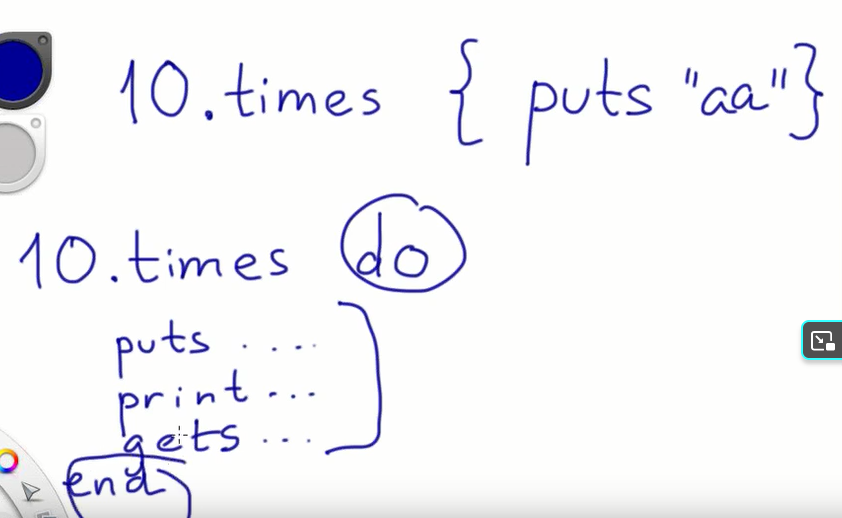 10.times { puts "aa" }
10.times do
puts ....
print ...
gets ...
end